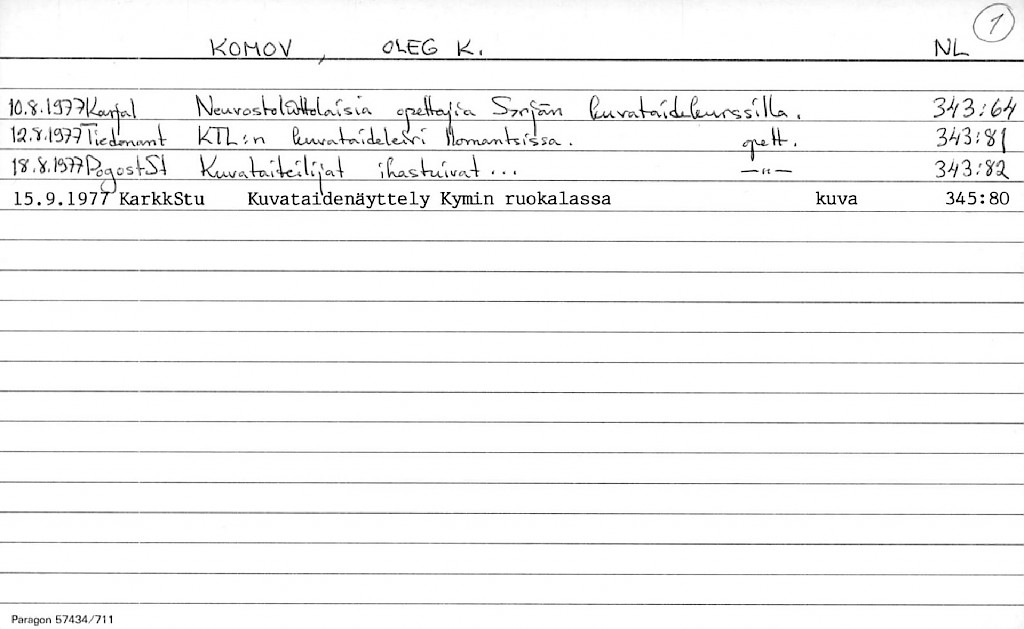 1
KOMOV, OLEG K. NL
10.8.1977 Karjal Neuvostoliittolaisia opettajia Syrjän kuvataidekurssilla. 343:64
12.8.1977 Tiedonant KTL:n kuvataideleiri Ilomantsissa. opett. 343:81
18.8.1977 PogostSt Kuvataiteilijat ihastuivat... —"— 343:82
15.9.1977 KarkkStu Kuvataidenäyttely Kymin ruokalassa kuva 345:80
Paragon 57434/711